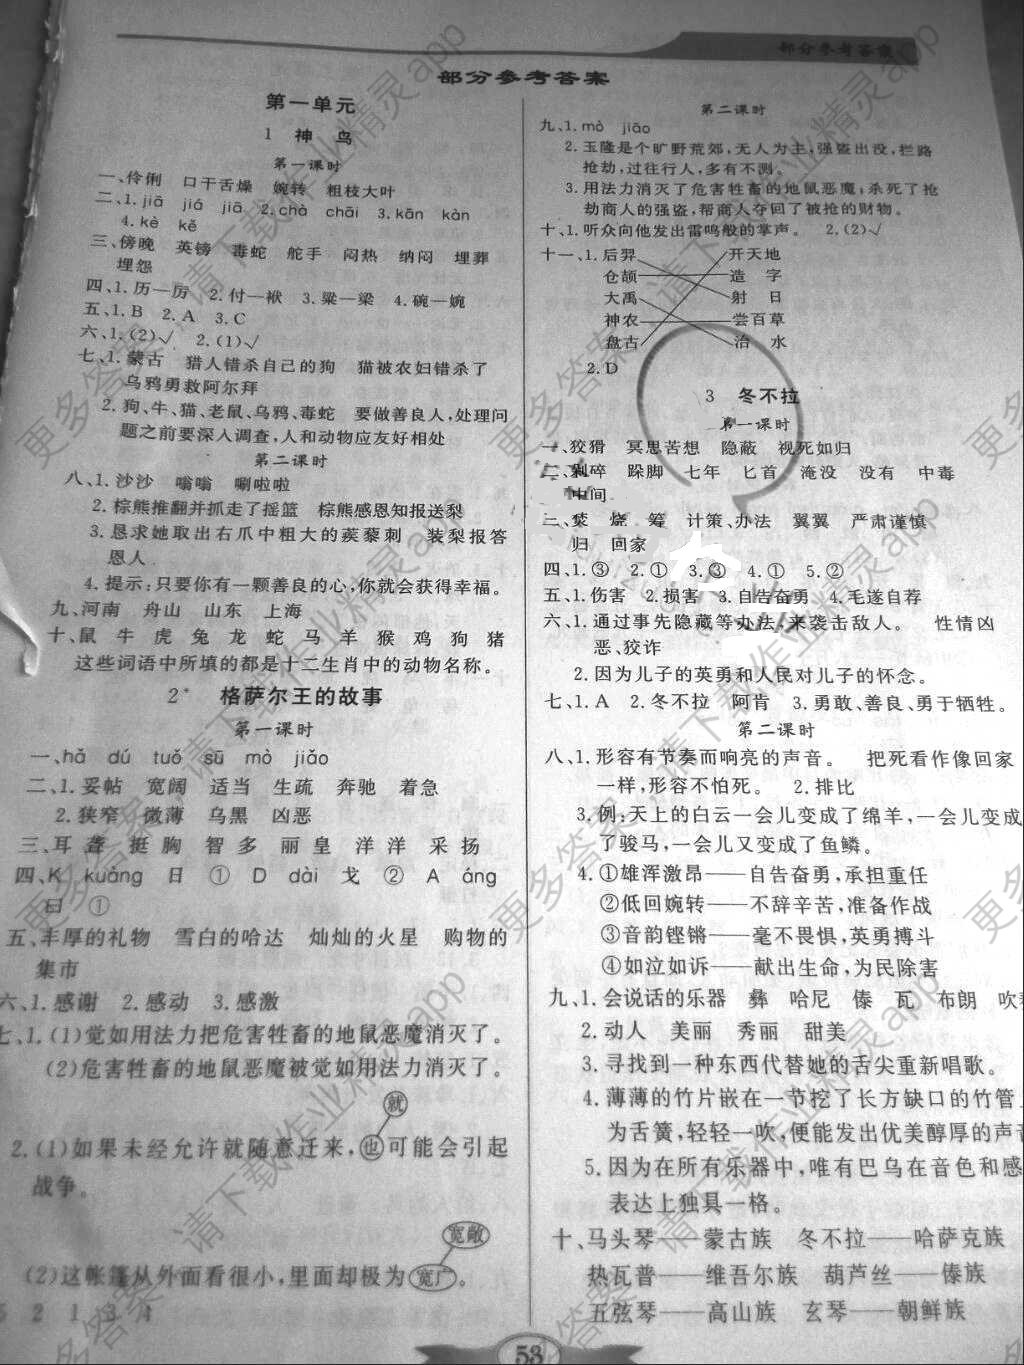 部分参考答案
部分参考答案
第一单元
1 神鸟
第一课时
一、伶俐 口干舌燥 婉转 粗枝大叶
二、1.jiā jiá jiā 2.chà chāi 3.kān kàn
4.kè kě
三、傍晚 英镑 毒蛇 舵手 闷热 纳闷 埋葬
埋怨
四、1.历—厉 2.付—袱 3.粱—梁 4.碗—婉
五、1.B 2.A 3.C
六、1.(2)√ 2.(1)√
七、1.蒙古 猎人错杀自己的狗 猫被农妇错杀了
乌鸦勇救阿尔拜
2.狗、牛、猫、老鼠、乌鸦、毒蛇 要做善良人,处理问
题之前要深入调查,人和动物应友好相处
第二课时
八、1.沙沙 嗡嗡 唰啦啦
2.棕熊推翻并抓走了摇篮 棕熊感恩知报送梨
3.恳求她取出右爪中粗大的蒺藜刺 装梨报答
恩人
4.提示:只要你有一颗善良的心,你就会获得幸福。
九、河南 舟山 山东 上海
十、鼠 牛 虎 兔 龙 蛇 马 羊 猴 鸡 狗 猪
这些词语中所填的都是十二生肖中的动物名称。
2* 格萨尔王的故事
第一课时
一、hǎ dú tuǒ sū mò jiǎo
二、1.妥帖 宽阔 适当 生疏 奔驰 着急
2.狭窄 微薄 乌黑 凶恶
三、耳聋 挺胸 智多 丽皇 洋洋 采扬
四、K kuǎng 日 ① D dài 戈 ② A áng
曰 ①
五、丰厚的礼物 雪白的哈达 灿灿的火星 购物的
集市
六、1.感谢 2.感动 3.感激
七、1.(1)觉如用法力把危害牲畜的地鼠恶魔消灭了。
(2)危害牲畜的地鼠恶魔被觉如用法力消灭了。
就
2.(1)如果未经允许就随意迁来,也可能会引起
战争。
宽敞
(2)这帐篷从外面看很小,里面却极为宽广。
5 2 1 3 4
第二课时
九、1.mò jiāo
2.玉隆是个旷野荒郊,无人为主,强盗出没,拦路
抢劫,过往行人,多有不测。
3.用法力消灭了危害牲畜的地鼠恶魔;杀死了抢
劫商人的强盗,帮商人夺回了被抢的财物。
十、1.听众向他发出雷鸣般的掌声。 2.(2)√
十一、1.后羿 开天地
仓颉 造 字
大禹 射 日
神农 尝百草
盘古 治 水
2.D
3 冬不拉
第一课时
一、狡猾 冥思苦想 隐蔽 视死如归
二、剁碎 跺脚 七年 匕首 淹没 没有 中毒
中间
三、焚 烧 筹 计策、办法 翼翼 严肃谨慎
归 回家
四、1.③ 2.① 3.③ 4.① 5.②
五、1.伤害 2.损害 3.自告奋勇 4.毛遂自荐
六、1.通过事先隐藏等办法,来袭击敌人。 性情凶
恶、狡诈
2.因为儿子的英勇和人民对儿子的怀念。
七、1.A 2.冬不拉 阿肯 3.勇敢、善良、勇于牺牲。
第二课时
八、1.形容有节奏而响亮的声音。 把死看作像回家
一样,形容不怕死。 2.排比
3.例:天上的白云一会儿变成了绵羊,一会儿变成
了骏马,一会儿又变成了鱼鳞。
4.①雄浑激昂——自告奋勇,承担重任
②低回婉转——不辞辛苦,准备作战
③音韵铿锵——毫不畏惧,英勇搏斗
④如泣如诉——献出生命,为民除害
九、1.会说话的乐器 彝 哈尼 傣 瓦 布朗 吹
2.动人 美丽 秀丽 甜美
3.寻找到一种东西代替她的舌尖重新唱歌。
4.薄薄的竹片嵌在一节挖了长方缺口的竹管
为舌簧,轻轻一吹,便能发出优美醇厚的声音
5.因为在所有乐器中,唯有巴乌在音色和感
表达上独具一格。
十、马头琴——蒙古族 冬不拉——哈萨克族
热瓦普——维吾尔族 葫芦丝——傣族
五弦琴——高山族 玄琴——朝鲜族
53